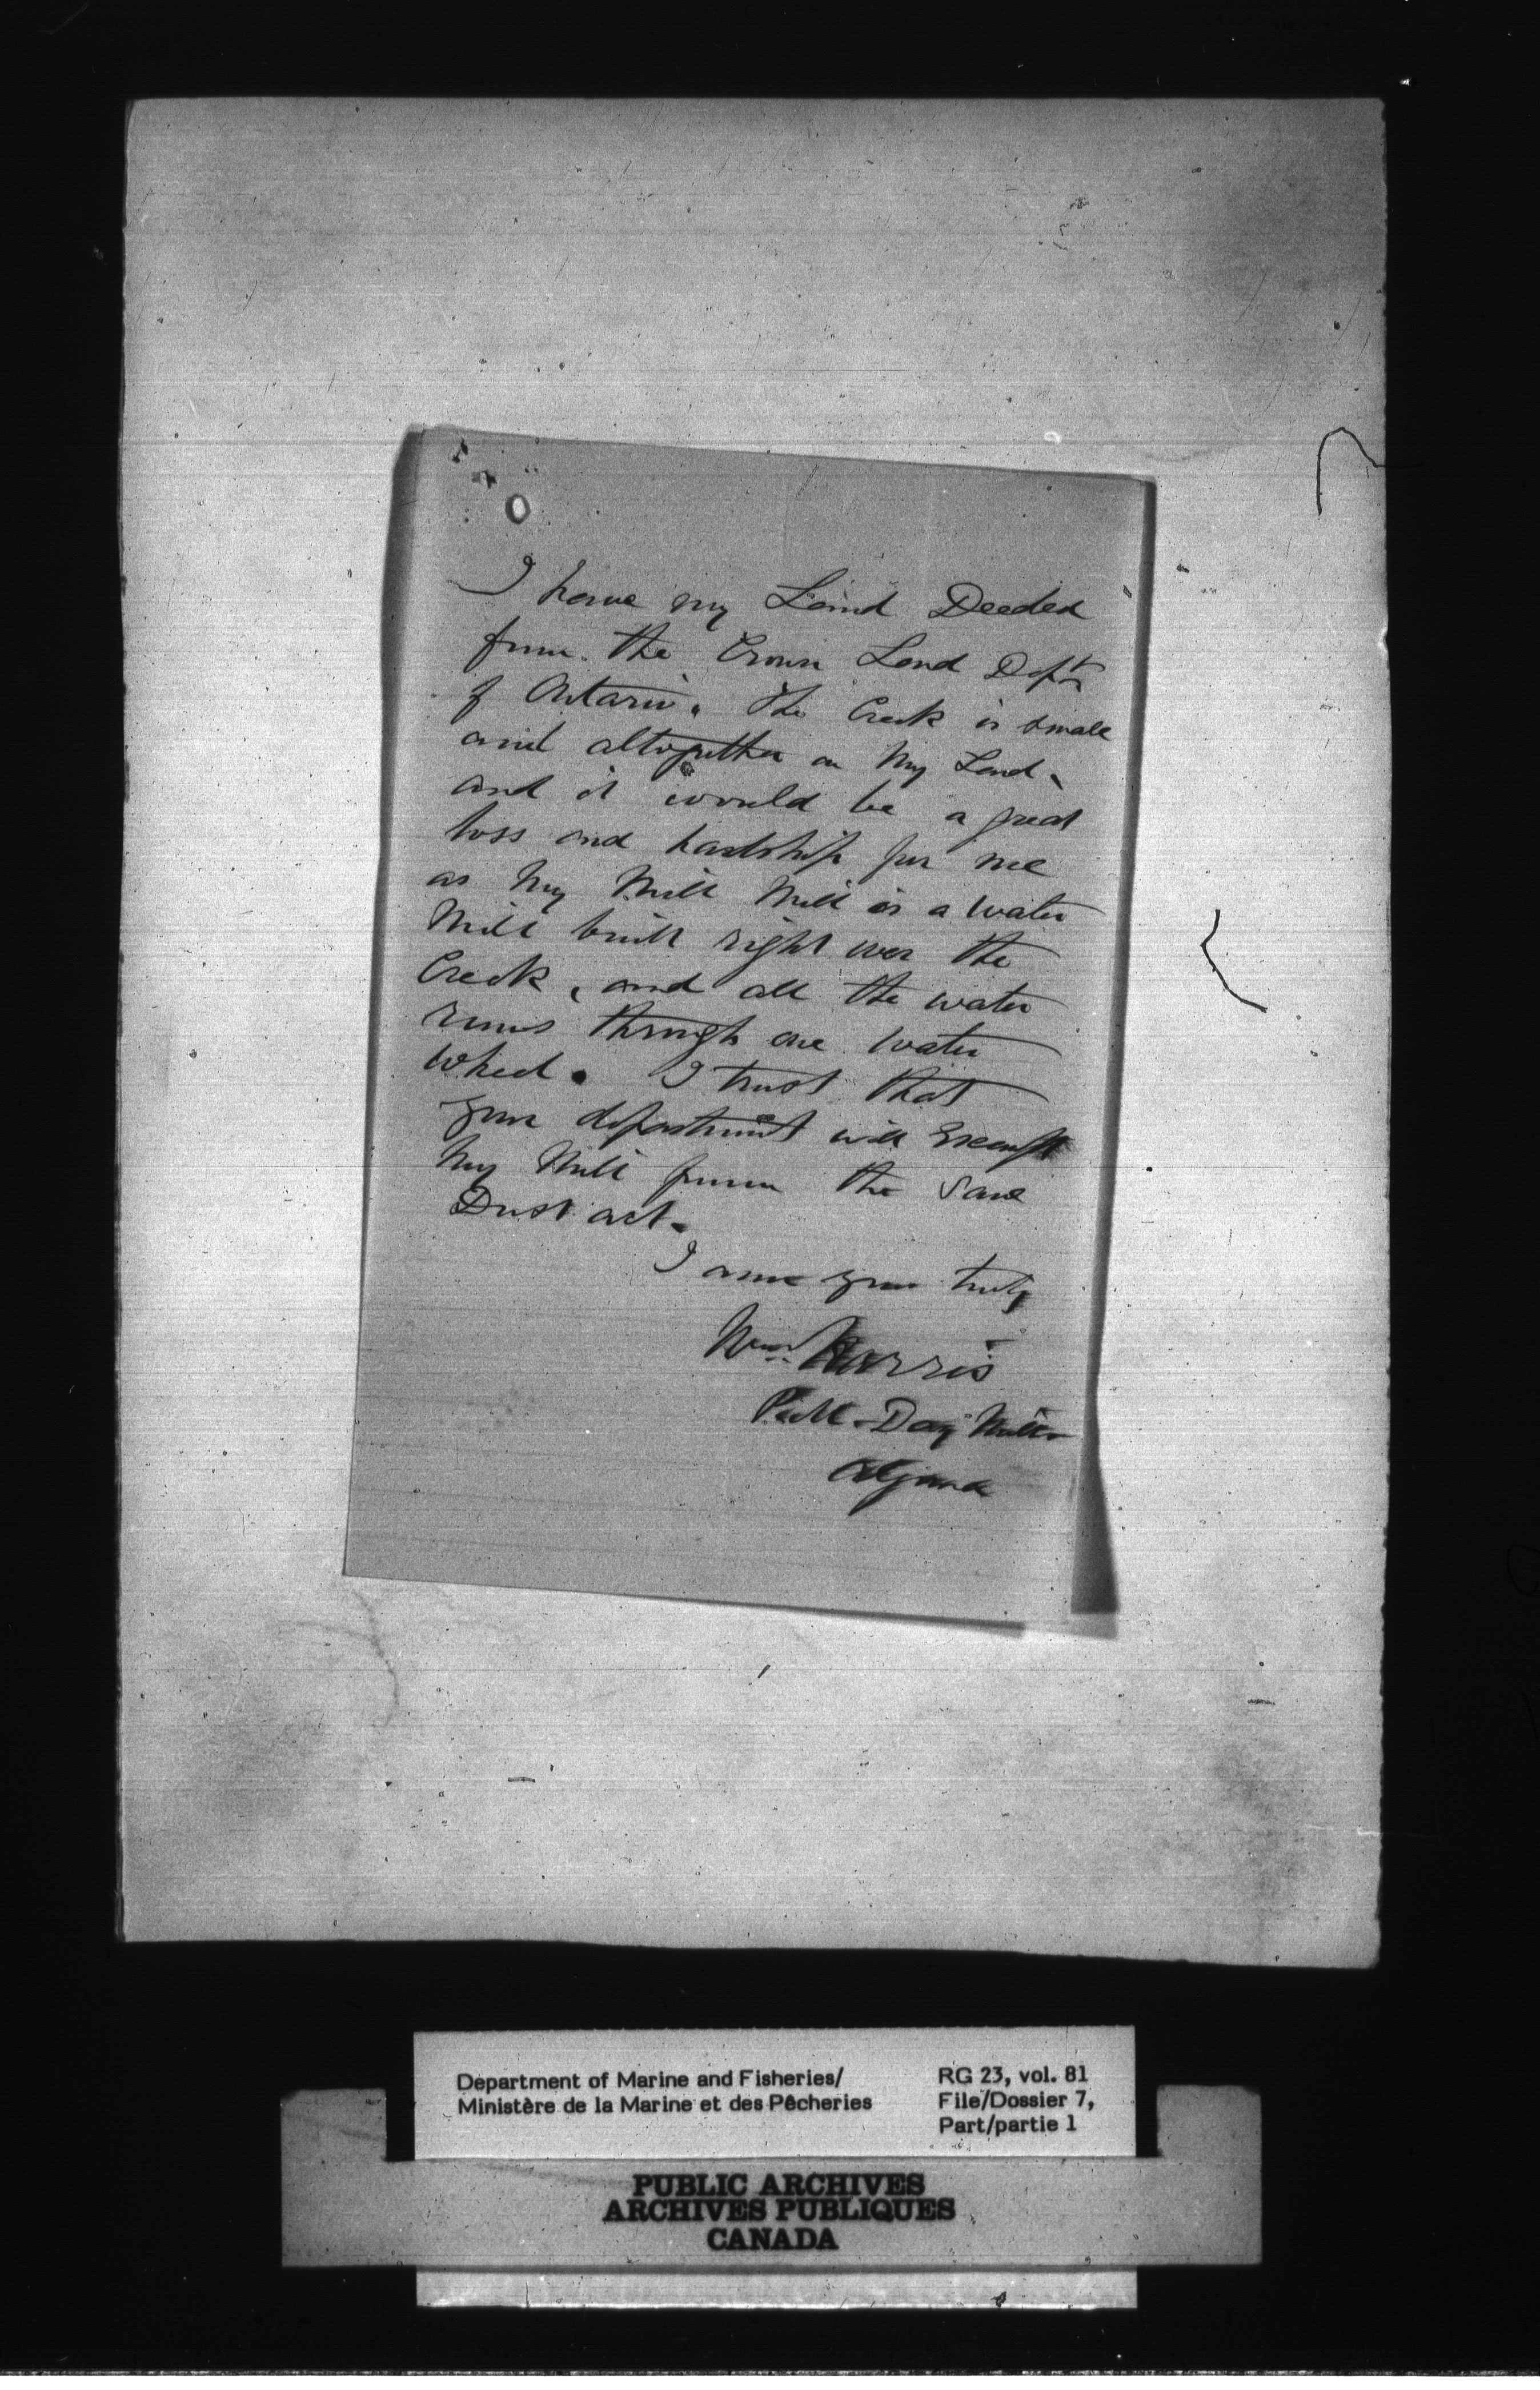 I have my Land Deeded
from the Crown Land Dept
of Ontario. The Creek is small
and altogether on My Land.
and it would be a great
loss and hardship for me
as My Mill Mill is a Water
Mill built right over the
Creek, and all the water
runs through one Water
Wheel. I trust that
your department will Exempt
My Mill from the Saw
Dust act.
I am your truly
Wm Harris
Day Mills
Algoma
Department of Marine and Fisheries/
Ministère de la Marine et des Pêcheries
RG 23, vol. 81
File/Dossier 7,
Part/partie 1
PUBLIC ARCHIVES
ARCHIVES PUBLIQUES
CANADA